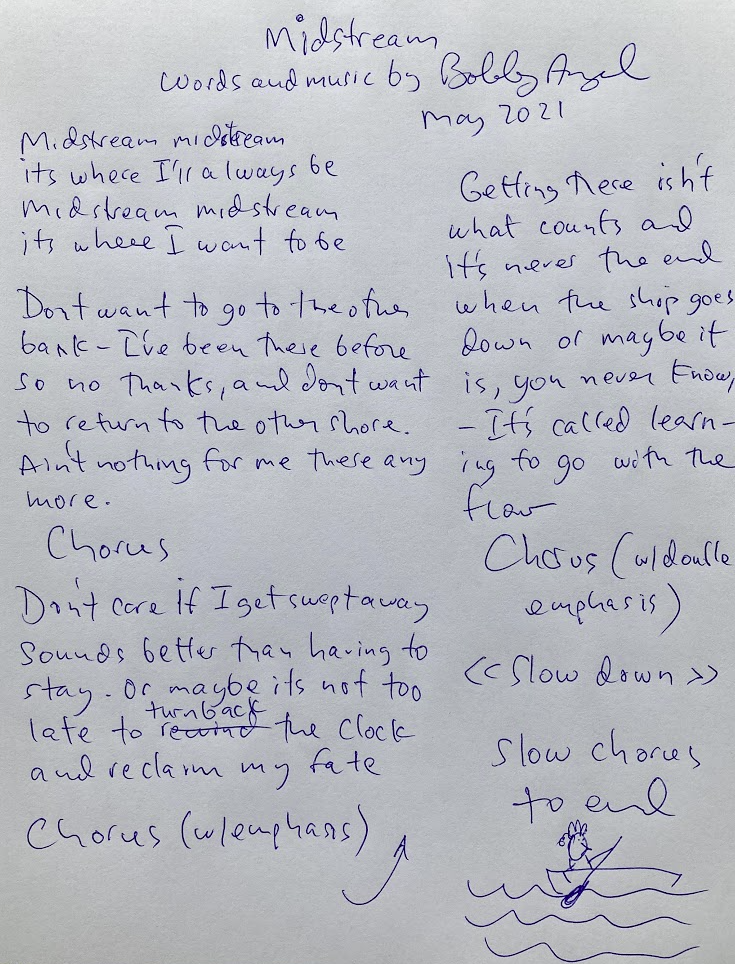 Midstream
Words and music by Bobby Angel
May 2021
Midstream midstream
its where I'll always be
Midstream midstream
its where I want to be
Dont want to go to the other
bank - I've been there before
so no thanks, and dont want
to return to the other shore.
Ain't nothing for me there any
more.
Chorus
Don't care if I get swept away
Sounds better than having to
stay. Or maybe its not too
late to rewind turn back the clock
and reclaim my fate
Chorus (w/emphasis)
Getting there isn't
what counts and
it's never the end
when the ship goes
down or maybe it
is, you never know,
- It's called learn-
ing to go with the
flow
Chorus (w/double
emphasis)
<< Slow down >>
Slow chorus
to end